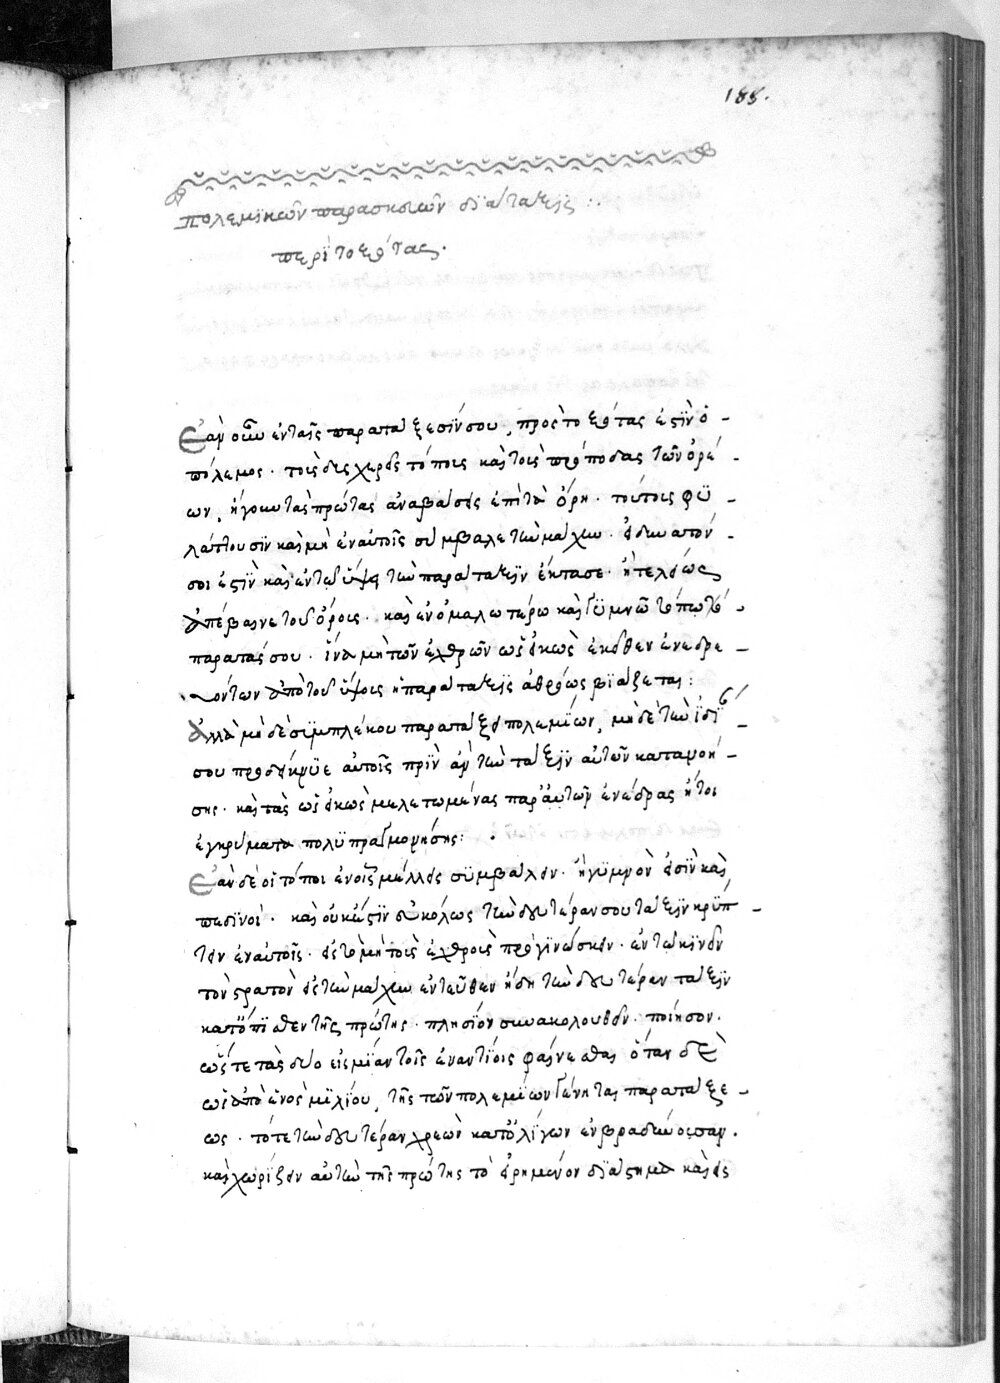 188.
πολεμϊκῶν παρασκευῶν διάταξις :.
περὶ τοξότας.
Ἐὰν οὖν ἐν ταῖς παρατάξεσίν σου, πρὸς τοξότας ἐστὶν ὁ
πόλεμος. τοὺς δυσχερεῖς τόπους καὶ τοὺς πρόποδας τῶν ὀρέ
ων, ἤγουν τὰς πρώτας ἀναβάσεις ἐπὶ τὰ ὄρη. τούτοις φϋ
λάττου σϊν καὶ μὴ ἐν αὐτοῖς συμβάλε τὴν μάχην. εἰ δυνατόν
σοι ἐστὶν καὶ ἐν τῷ ὕψει τὴν παράταξιν ἔκτασε. ἢ τελείως
ἀπέβαινε τοῦ ὄρους. καὶ ἐν ὁμαλωτέρω καὶ γϋμνῶ τόπω
παρατάσσου. ἵνα μὴ τῶν ἐχθρῶν ὡς εἰκὸς ἐκεῖθεν ἐνεδρευ
όντων ἀπὸ τοῦ ὕψους ἡ παράταξις ἀθρόως βϊάζεται:
Ἀλλὰ μὴ δὲ σϋμπλέκου παρατάξει πολεμίων, μὴ δὲ τὴν ἰδί
σου προσδείκνυε αὐτοῖς πρὶν ἂν τὴν τάξιν αὐτῶν κατανοή
σης. καὶ τὰς ὡς εἰκὸς μελετωμένας παρ' αὐτῶν ἐνέδρας ἤτοι
ἐγκρύματα πολϋπραγμονήσης:
Ἐὰν δὲ οἱ τόποι ἐν οἷς μέλλεις σϋμβάλειν. ἢ γϋμνοὶ εἰσὶν καὶ
πεδινοὶ. καὶ οὐκ ἔστιν εὐκόλως τὴν δευτέραν σου τάξιν κρϋπ
τειν ἐν αὐτοῖς. εἰς τὸ μὴ τοὺς ἐχθροὺς προγινώσκειν. ἐν τῷ κινεῖν
τὸν στρατὸν εἰς τὴν μάχην ἐντεῦθεν ἤδη τὴν δευτέραν τάξιν
κατόπϊσθεν τῆς πρώτης. πλησίον συνακολουθεῖν. ποίησον.
ὥστε τὰς δύο εἰς μίαν τοῖς ἐναντίοις φαίνεσθαι ὅταν δὲ
ὡς ἀπὸ ἑνὸς μιλίου, τῆς τῶν πολεμίων γένηται παρατάξε
ως. τότε τὴν δευτέραν χρεὼν κατ' ὀλίγων ἐνβραδύνουσαν.
καὶ χωρίζειν αὐτὴν τῆς πρώτης τὸ εἰρημένον διάστημα καὶ εἰς